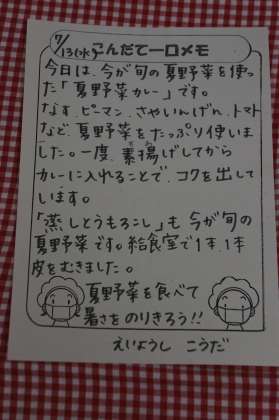 7/13(水) こんだて一口メモ
今日は、今が旬の夏野菜を使っ
た「夏野菜カレー」です。
なす、ピーマン、さやいんげん、トマト
など、夏野菜をたっぷり使いま
した。一度、素揚げしてから
カレーに入れることで、コクを出して
います。
「蒸しとうもろこし」も今が旬の
夏野菜です。給食室で1本、1本
皮をむきました。
夏野菜を食べて
暑さをのりきろう!!
えいようし こうだ